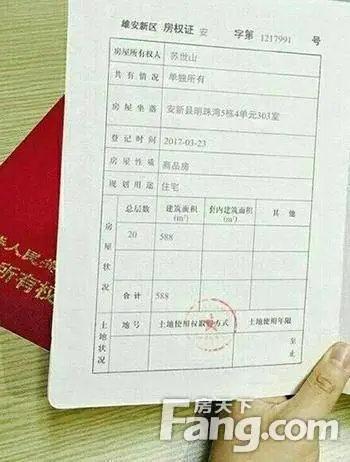 雄安新区 房权证 安 字第 1217991 号
房屋所有权人 苏世山
共有情况 单独所有
房屋坐落 安新县明珠湾5栋4单元303室
登记时间 2017-03-23
房屋性质 商品房
规划用途 住宅
房屋状况
总层数 建筑面积(m²) 套内建筑面积(m²) 其他
20 588
合计 588
土地状况
地号 土地使用权取得方式 土地使用年限
至 止
华人民共
所有权
房天下
Fang.com